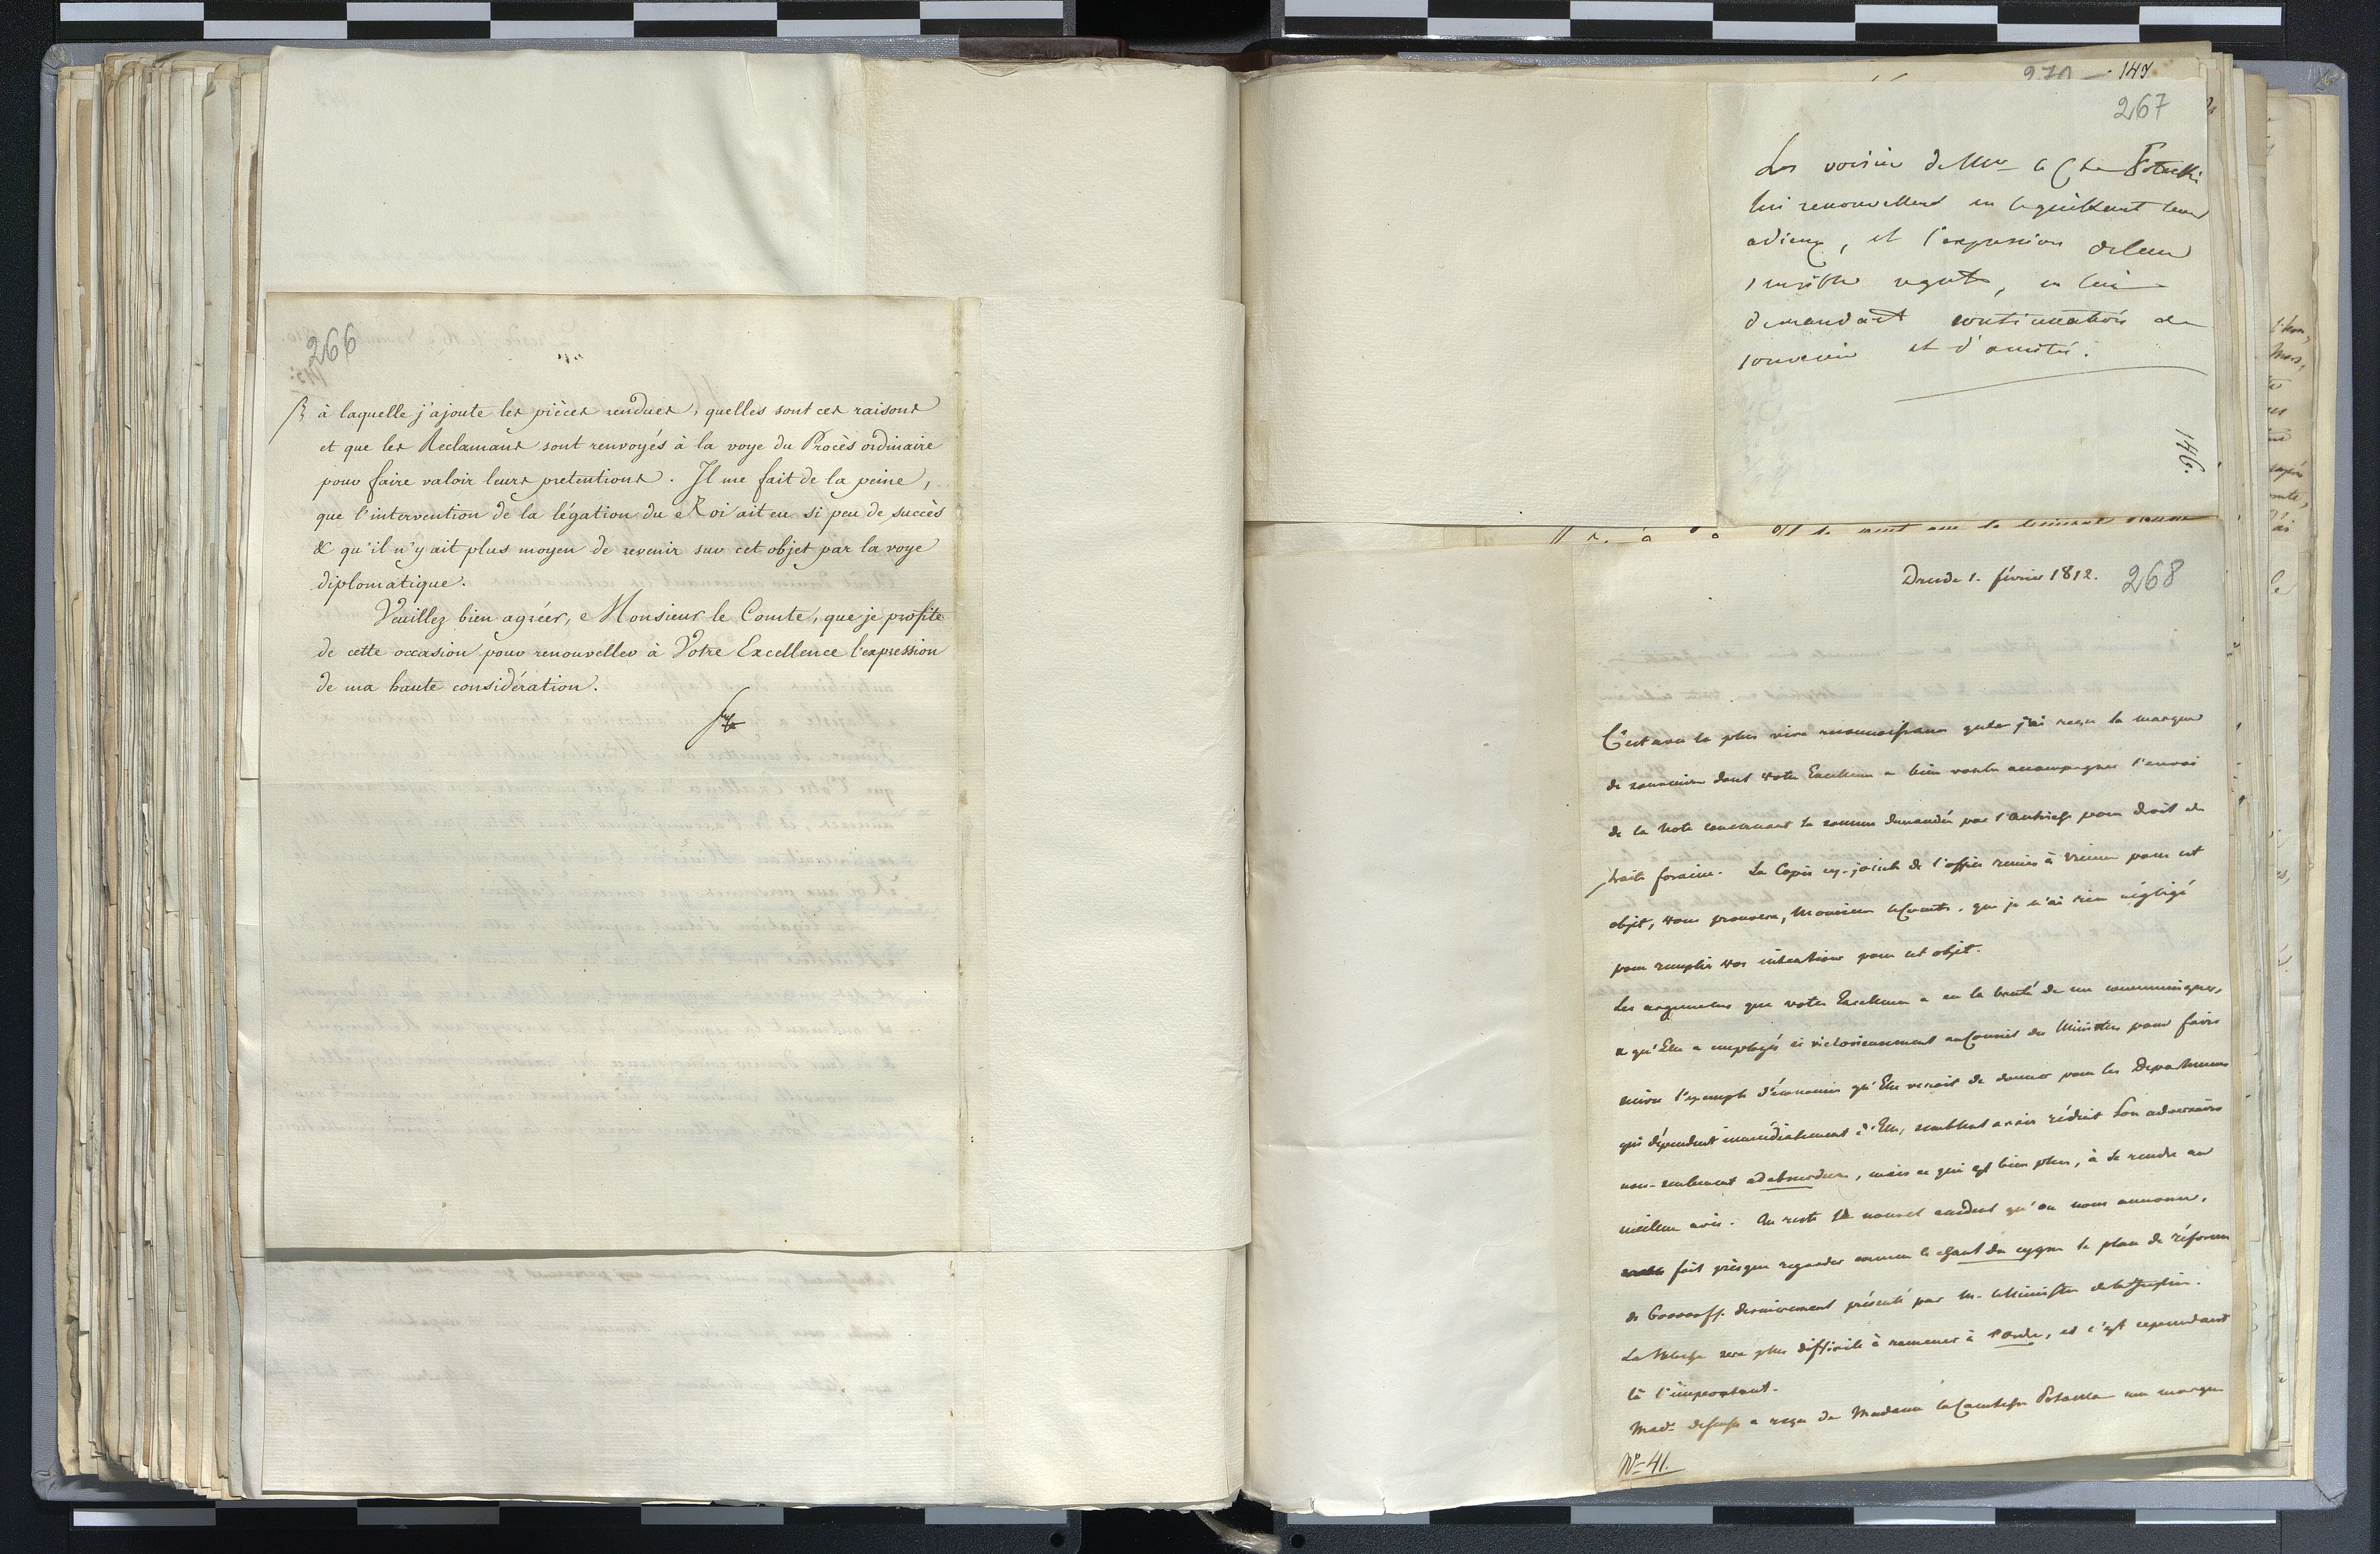 266
à laquelle j'ajoute les pièces rendues, quelles sont ces raisons
et que les Reclamans sont renvoyés à la voye du Procès ordinaire
pour faire valoir leurs pretentions. Il me fait de la peine,
que l'intervention de la légation du Roi ait eu si peu de succès
& qu'il n'y ait plus moyen de revenir sur cet objet par la voye
diplomatique.
Veuillez bien agréer, Monsieur le Comte, que je profite
de cette occasion pour renouveller à Votre Excellence l'expression
de ma haute considération.
147
267
Les voisins de Mr le Cte Potocki
lui renouvellent en le quittant leurs
adieux, et l'expression de leurs
sensibles regrets, en lui
demandant continuation de
souvenir et d'amitié.
146.
Dresde 1. février 1812.
268
C'est avec la plus vive reconnoissance que j'ai reçu la marque
de souvenir dont votre Excellence a bien voulu accompagner l'envoi
de la Note concernant la somme demandée par l'Autriche pour droit de
traite foraine. La Copie cy-jointe de l'office remis à Vienne pour cet
objet, vous prouvera, Monsieur le Comte, que je n'ai rien négligé
pour remplir vos intentions pour cet objet.
Les argumens que votre Excellence a eu la bonté de me communiquer,
& qu'Elle a employés si victorieusement au Conseil des Ministres pour faire
suivre l'exemple d'économie qu'Elle venoit de donner pour les Departemens
qui dépendent immédiatement d'Elle, semblent avoir réduit son adversaire
non-seulement ad absurdum, mais ce qui est bien plus, à se rendre au
meilleur avis. Au reste le nouvel accident qu'on nous annonce,
fait presque regarder comme le chant du cygne le plan de réforme
de dernierement présenté par M. le Ministre de la Justice.
La sera plus difficile à ramener à l'ordre, et c'est cependant
là l'important.
Made de Senfft a reçu de Madame la Comtesse Potocka une marque
No 41.